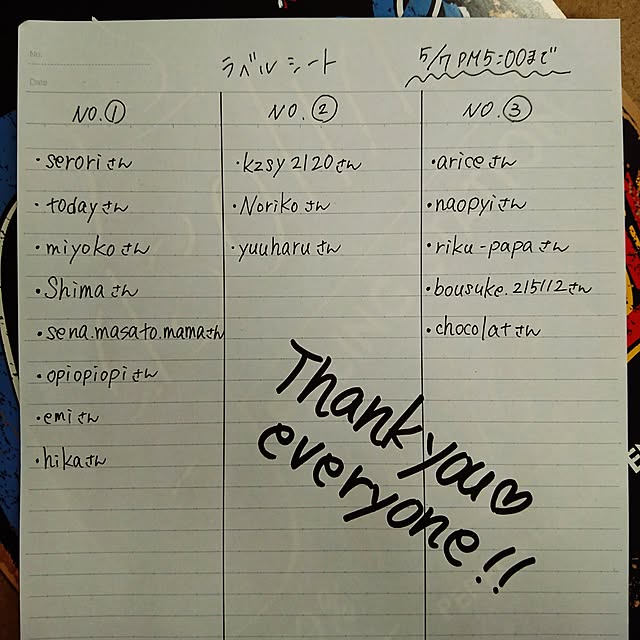 No.
Date
ラベルシート
5/7 PM5:00まで
NO.①
・seroriさん
・todayさん
・miyokoさん
・Shimaさん
・sena.masato.mamaさん
・opiopiopiさん
・emiさん
・hikaさん
NO.②
・kzsy2120さん
・Norikoさん
・yuuharuさん
NO.③
・ariceさん
・naopyiさん
・riku-papaさん
・bousuke.215112さん
・chocolatさん
Thank you♡
everyone!!